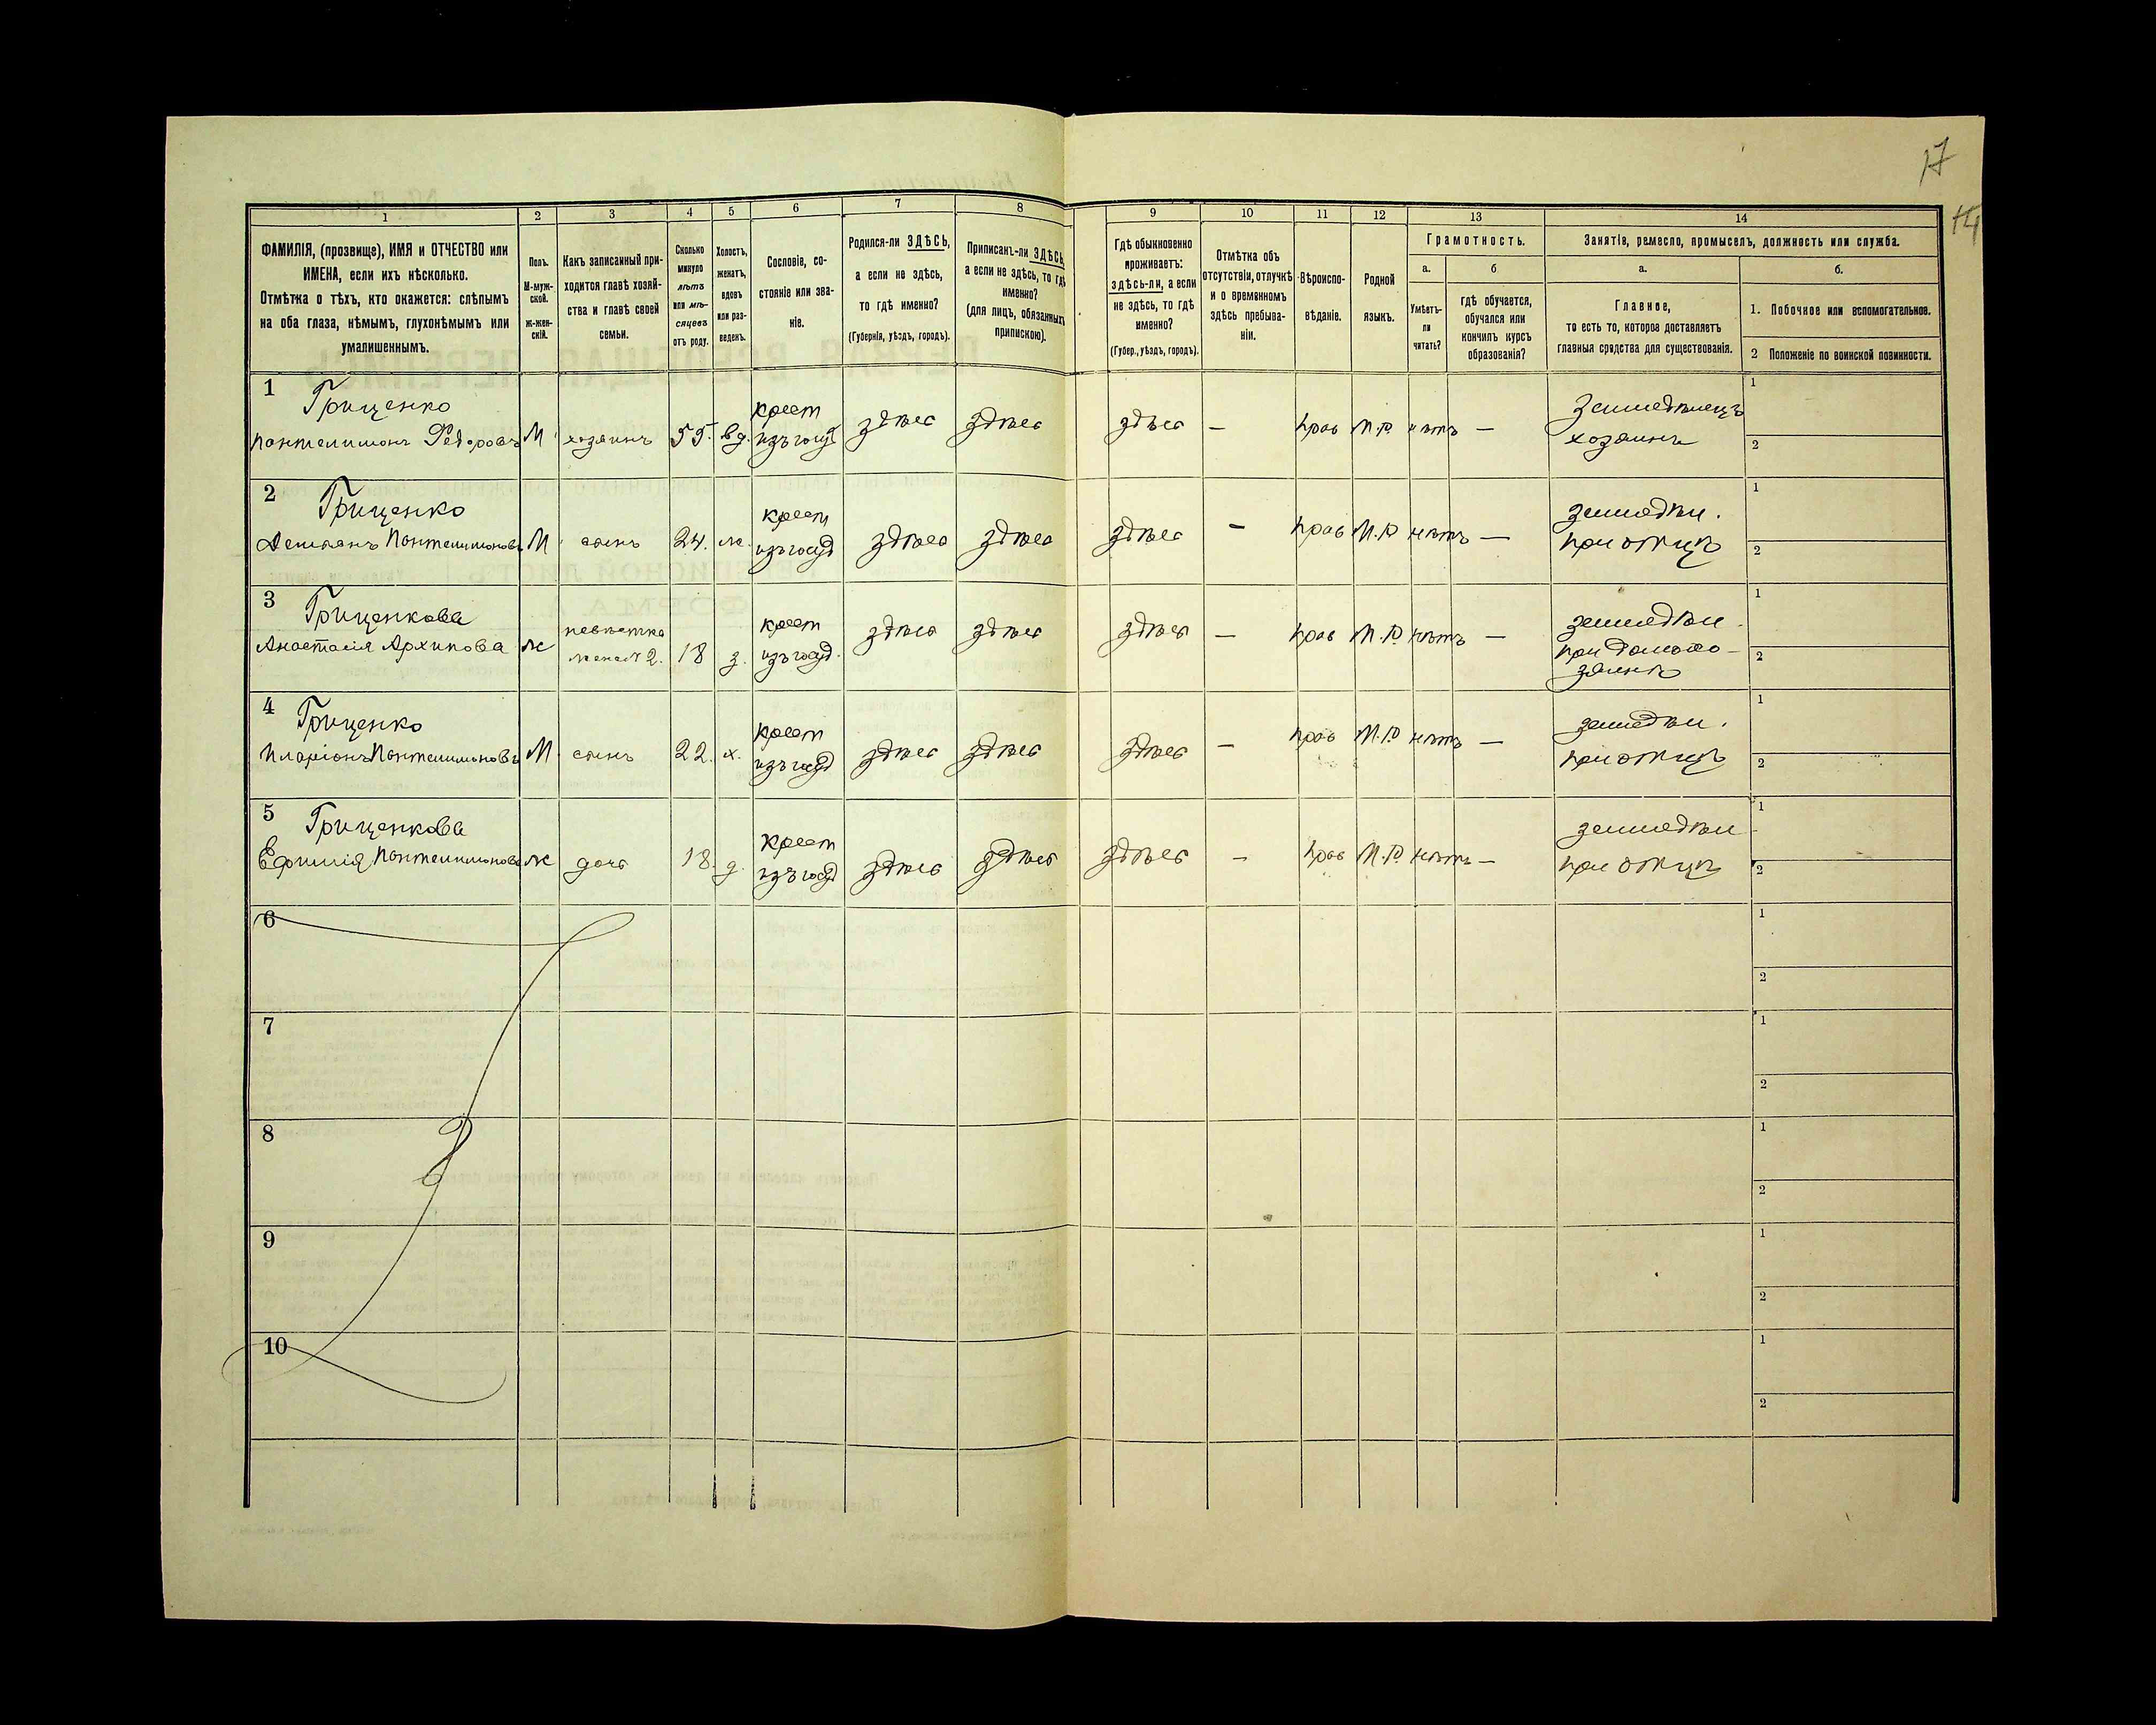 17
14
1 2 3 4 5 6 7 8 9 10 11 12 13 14
ФАМИЛІЯ, (прозвище), ИМЯ и ОТЧЕСТВО или
ИМЕНА, если ихъ нѣсколько.
Отмѣтка о тѣхъ, кто окажется: слѣпымъ
на оба глаза, нѣмымъ, глухонѣмымъ или
умалишеннымъ.
Полъ.
М-муж-
ской.
ж-жен-
скій.
Какъ записанный при-
ходится главѣ хозяй-
ства и главѣ своей
семьи.
Сколько
минуло
лѣтъ
или мѣ-
сяцевъ
отъ роду.
Холостъ,
женатъ,
вдовъ
или раз-
веденъ.
Сословіе, со-
стояніе или зва-
ніе.
Родился-ли ЗДѢСЬ,
а если не здѣсь,
то гдѣ именно?
(Губернія, уѣздъ, городъ).
Приписанъ-ли ЗДѢСЬ,
а если не здѣсь, то гдѣ
именно?
(для лицъ, обязанныхъ
припискою).
Гдѣ обыкновенно
проживаетъ:
здѣсь-ли, а если
не здѣсь, то гдѣ
именно?
(Губер., уѣздъ, городъ).
Отмѣтка объ
отсутствіи, отлучкѣ
и о временномъ
здѣсь пребыва-
ніи.
Вѣроиспо-
вѣданіе.
Родной
языкъ.
Грамотность.
а.
Умѣетъ-
ли
читать?
б
гдѣ обучается,
обучался или
кончилъ курсъ
образованія?
Занятіе, ремесло, промыселъ, должность или служба.
а.
Главное,
то есть то, которое доставляетъ
главныя средства для существованія.
б.
1. Побочное или вспомогательное.
2 Положеніе по воинской повинности.
1 Грищенко крест Земледѣлецъ 1
Пантелимонъ Федоровъ М хозяинъ 55. вд. изъ госуд здѣсь здѣсь здѣсь — прав М.Р. нѣтъ — хозяинъ 2
2 Грищенко крест земледѣл. 1
Демьянъ Пантелимоновъ М сынъ 24. ж. изъ госуд здѣсь здѣсь здѣсь — прав М.Р нѣтъ — при отцѣ 2
3 Грищенкова невѣстка крест земледѣл. 1
Анастасія Архипова ж жена № 2. 18 з. изъ госуд. здѣсь здѣсь здѣсь — прав М.Р. нѣтъ — при домохо- 2
зяинѣ
4 Грищенко крест земледѣл. 1
Иларіонъ Пантелимоновъ М. сынъ 22. х. изъ госуд здѣсь здѣсь здѣсь — прав М.Р нѣтъ — при отцѣ 2
5 Грищенкова крест земледѣл 1
Ефимія Пантелимонова ж дочь 18. д. изъ госуд здѣсь здѣсь здѣсь — прав М.Р. нѣтъ — при отцѣ 2
6 1
2
7 1
2
8 1
2
9 1
2
10 1
2